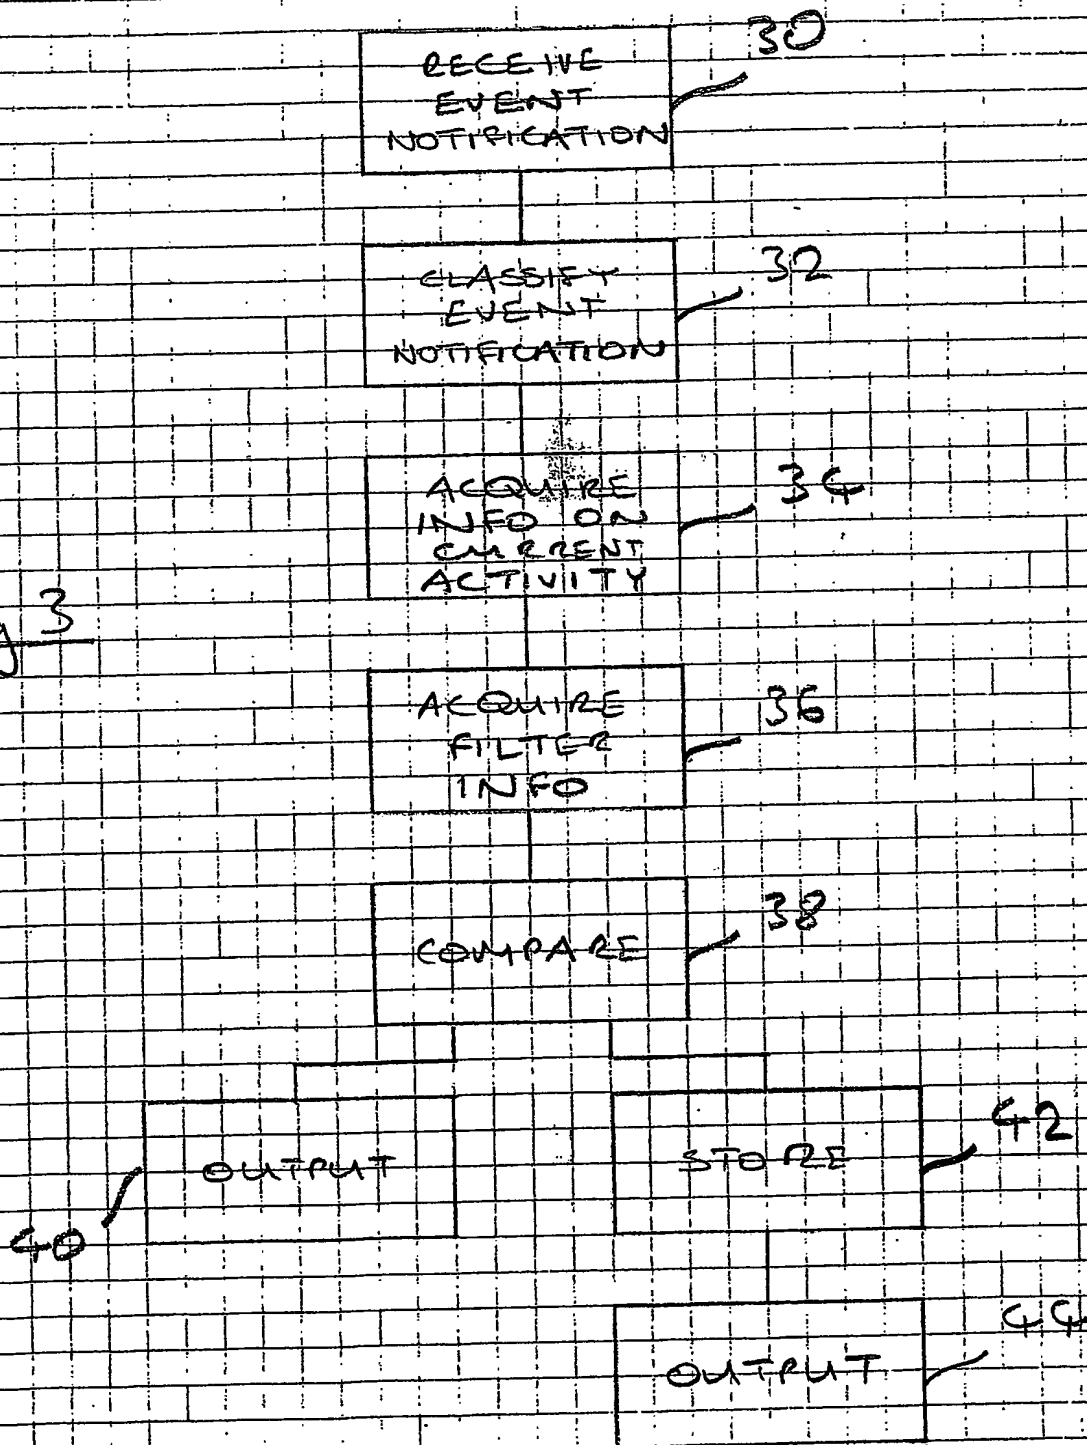 30
RECEIVE
EVENT
NOTIFICATION
32
CLASSIFY
EVENT
NOTIFICATION
34
ACQUIRE
INFO ON
CURRENT
ACTIVITY
3
36
ACQUIRE
FILTER
INFO
38
COMPARE
42
OUTPUT
STORE
40
44
OUTPUT